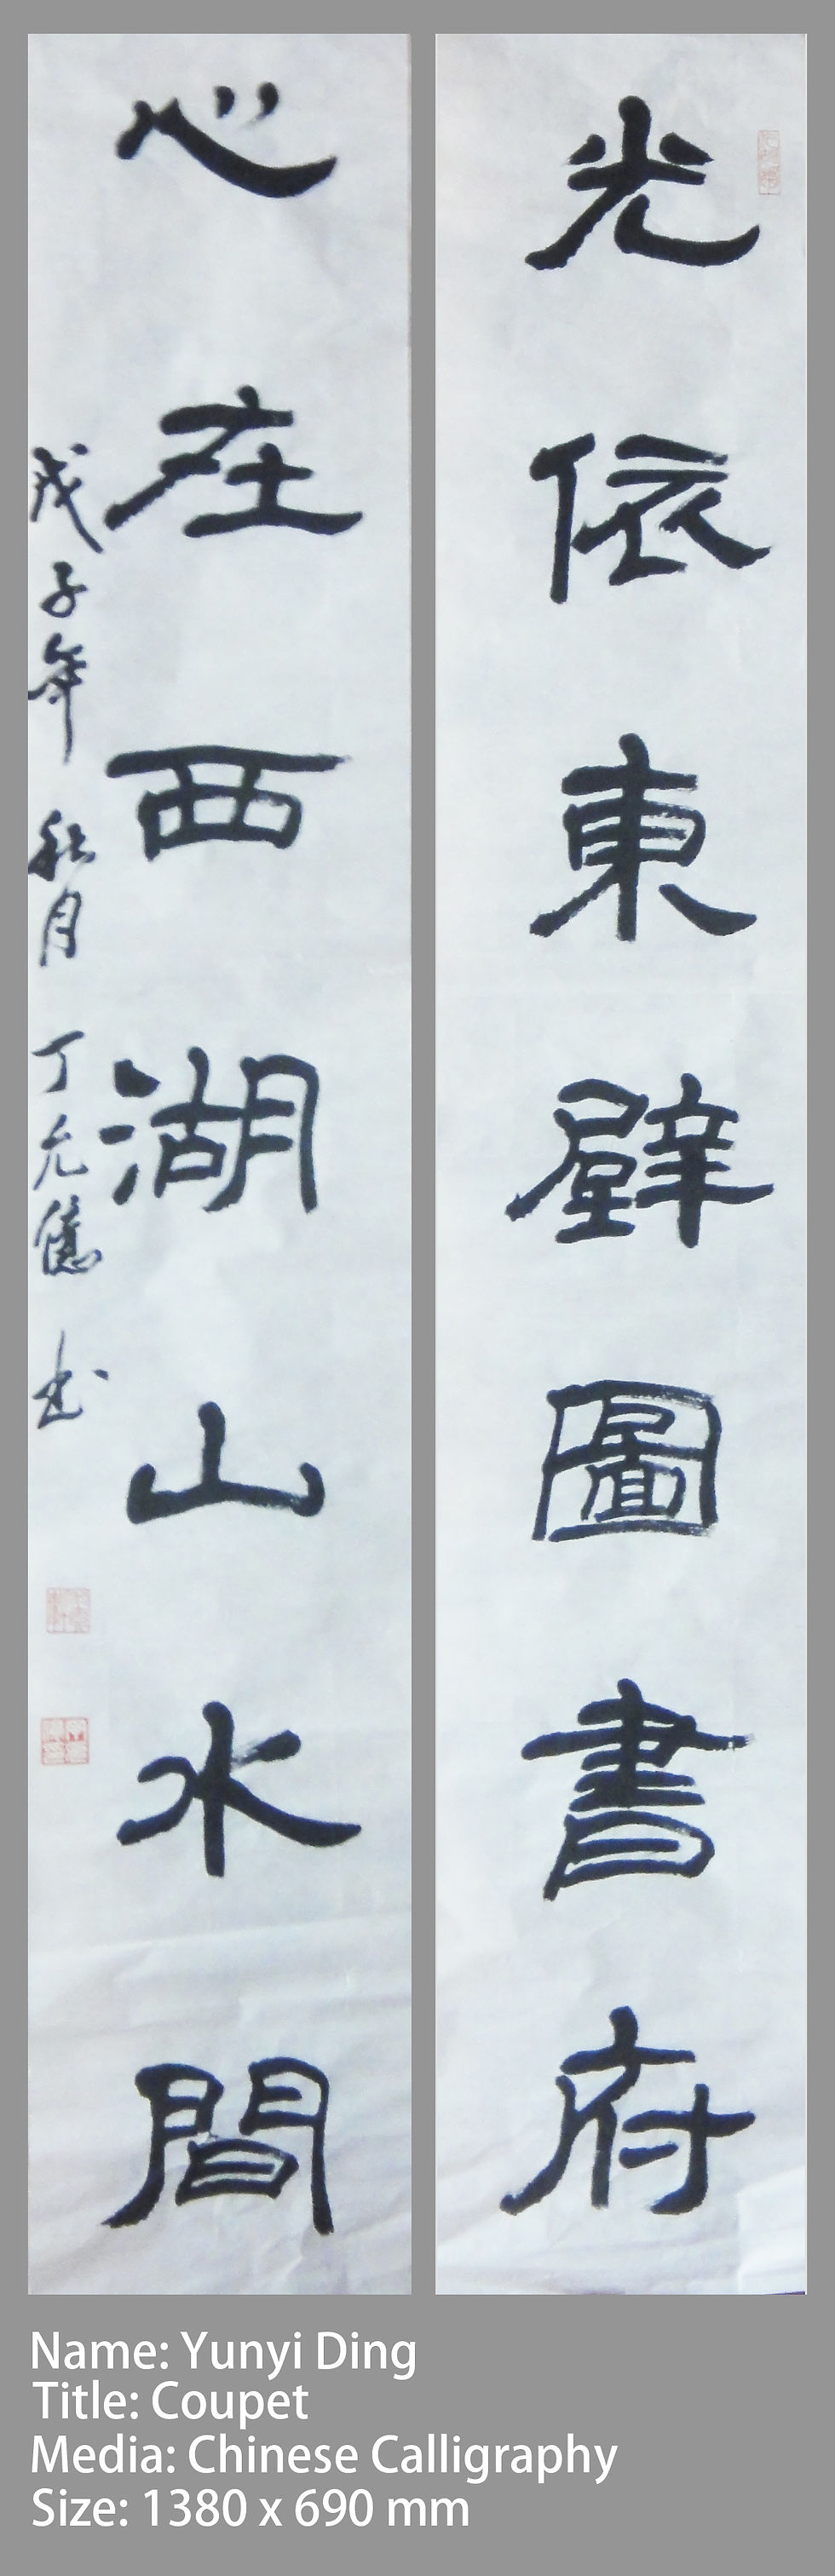 光依東壁圖書府
心在西湖山水間
戊子年秋月丁允億书
Name: Yunyi Ding
Title: Coupet
Media: Chinese Calligraphy
Size: 1380 x 690 mm